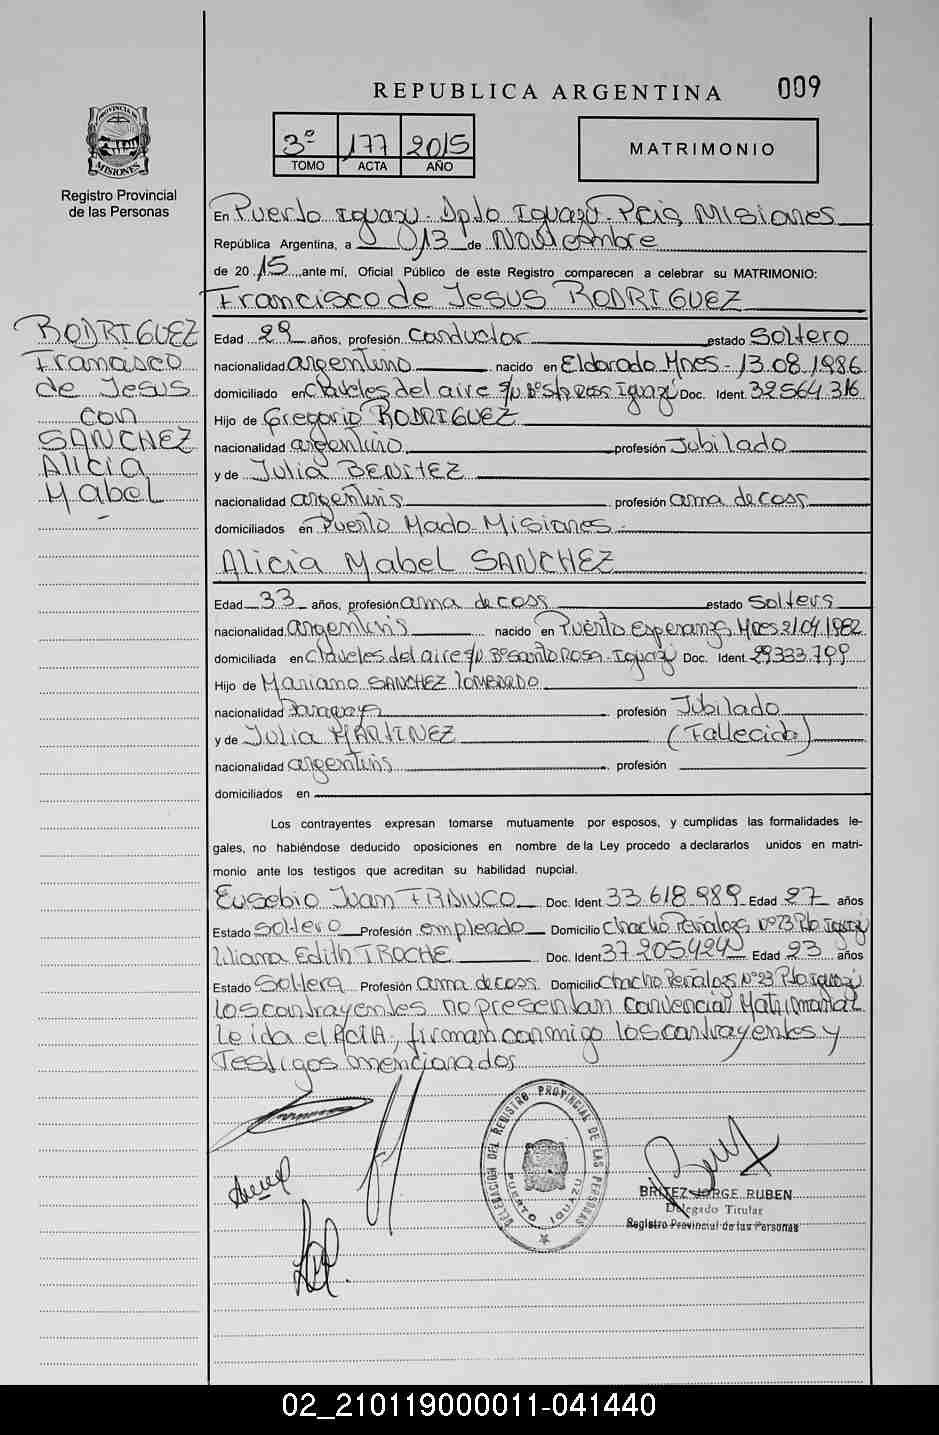 REPUBLICA ARGENTINA
009
3º 177 2015
TOMO ACTA AÑO
MATRIMONIO
PROVINCIA DE MISIONES
Registro Provincial
de las Personas
En Puerto Iguazu. Dpto Iguazu. Pcia, Misiones
República Argentina, a 13 de Noviembre
de 20 15 ,ante mí, Oficial Público de este Registro comparecen a celebrar su MATRIMONIO:
Francisco de Jesus RODRIGUEZ
RODRIGUEZ
Francisco
de Jesus
con
SANCHEZ
Alicia
Mabel
Edad 29 años, profesión conductor estado Soltero
nacionalidad argentino nacido en Eldorado Mnes - 13.08.1986
domiciliado en Claveles del aire s/n Bº Sta Rosa Iguazú Doc. Ident. 32564316
Hijo de Gregorio RODRIGUEZ
nacionalidad argentino profesión Jubilado
y de Julia BENITEZ
nacionalidad argentina profesión ama de casa
domiciliados en Puerto Mado - Misiones -
Alicia Mabel SANCHEZ
Edad 33 años, profesión ama de casa estado Soltera
nacionalidad argentina nacido en Puerto Esperanza Mnes 21.04.1982
domiciliada en Claveles del aire s/n Bº Santa Rosa - Iguazú Doc. Ident. 29333799
Hijo de Mariano SANCHEZ
nacionalidad Paraguaya profesión Jubilado
y de Julia MARTINEZ (Fallecida)
nacionalidad argentina profesión
domiciliados en
Los contrayentes expresan tomarse mutuamente por esposos, y cumplidas las formalidades le-
gales, no habiéndose deducido oposiciones en nombre de la Ley procedo a declararlos unidos en matri-
monio ante los testigos que acreditan su habilidad nupcial.
Eusebio Juan Doc. Ident 33.618.989 Edad 27 años
Estado Soltero Profesión empleado Domicilio Chacho Peñaloza Nº23 Pto Iguazú
Liliana Edith TROCHE Doc. Ident 37205424 Edad 23 años
Estado Soltera Profesión ama de casa Domicilio Chacho Peñaloza Nº23 Pto Iguazú
Los contrayentes no presentan Convencion Matrimonial
Leida el ACTA, firman conmigo los contrayentes y
Testigos mencionados
DELEGACION DEL REGISTRO PROVINCIAL DE LAS PERSONAS
PUERTO IGUAZU
BRITEZ JORGE RUBEN
Delegado Titular
Registro Provincial de las Personas
02_210119000011-041440